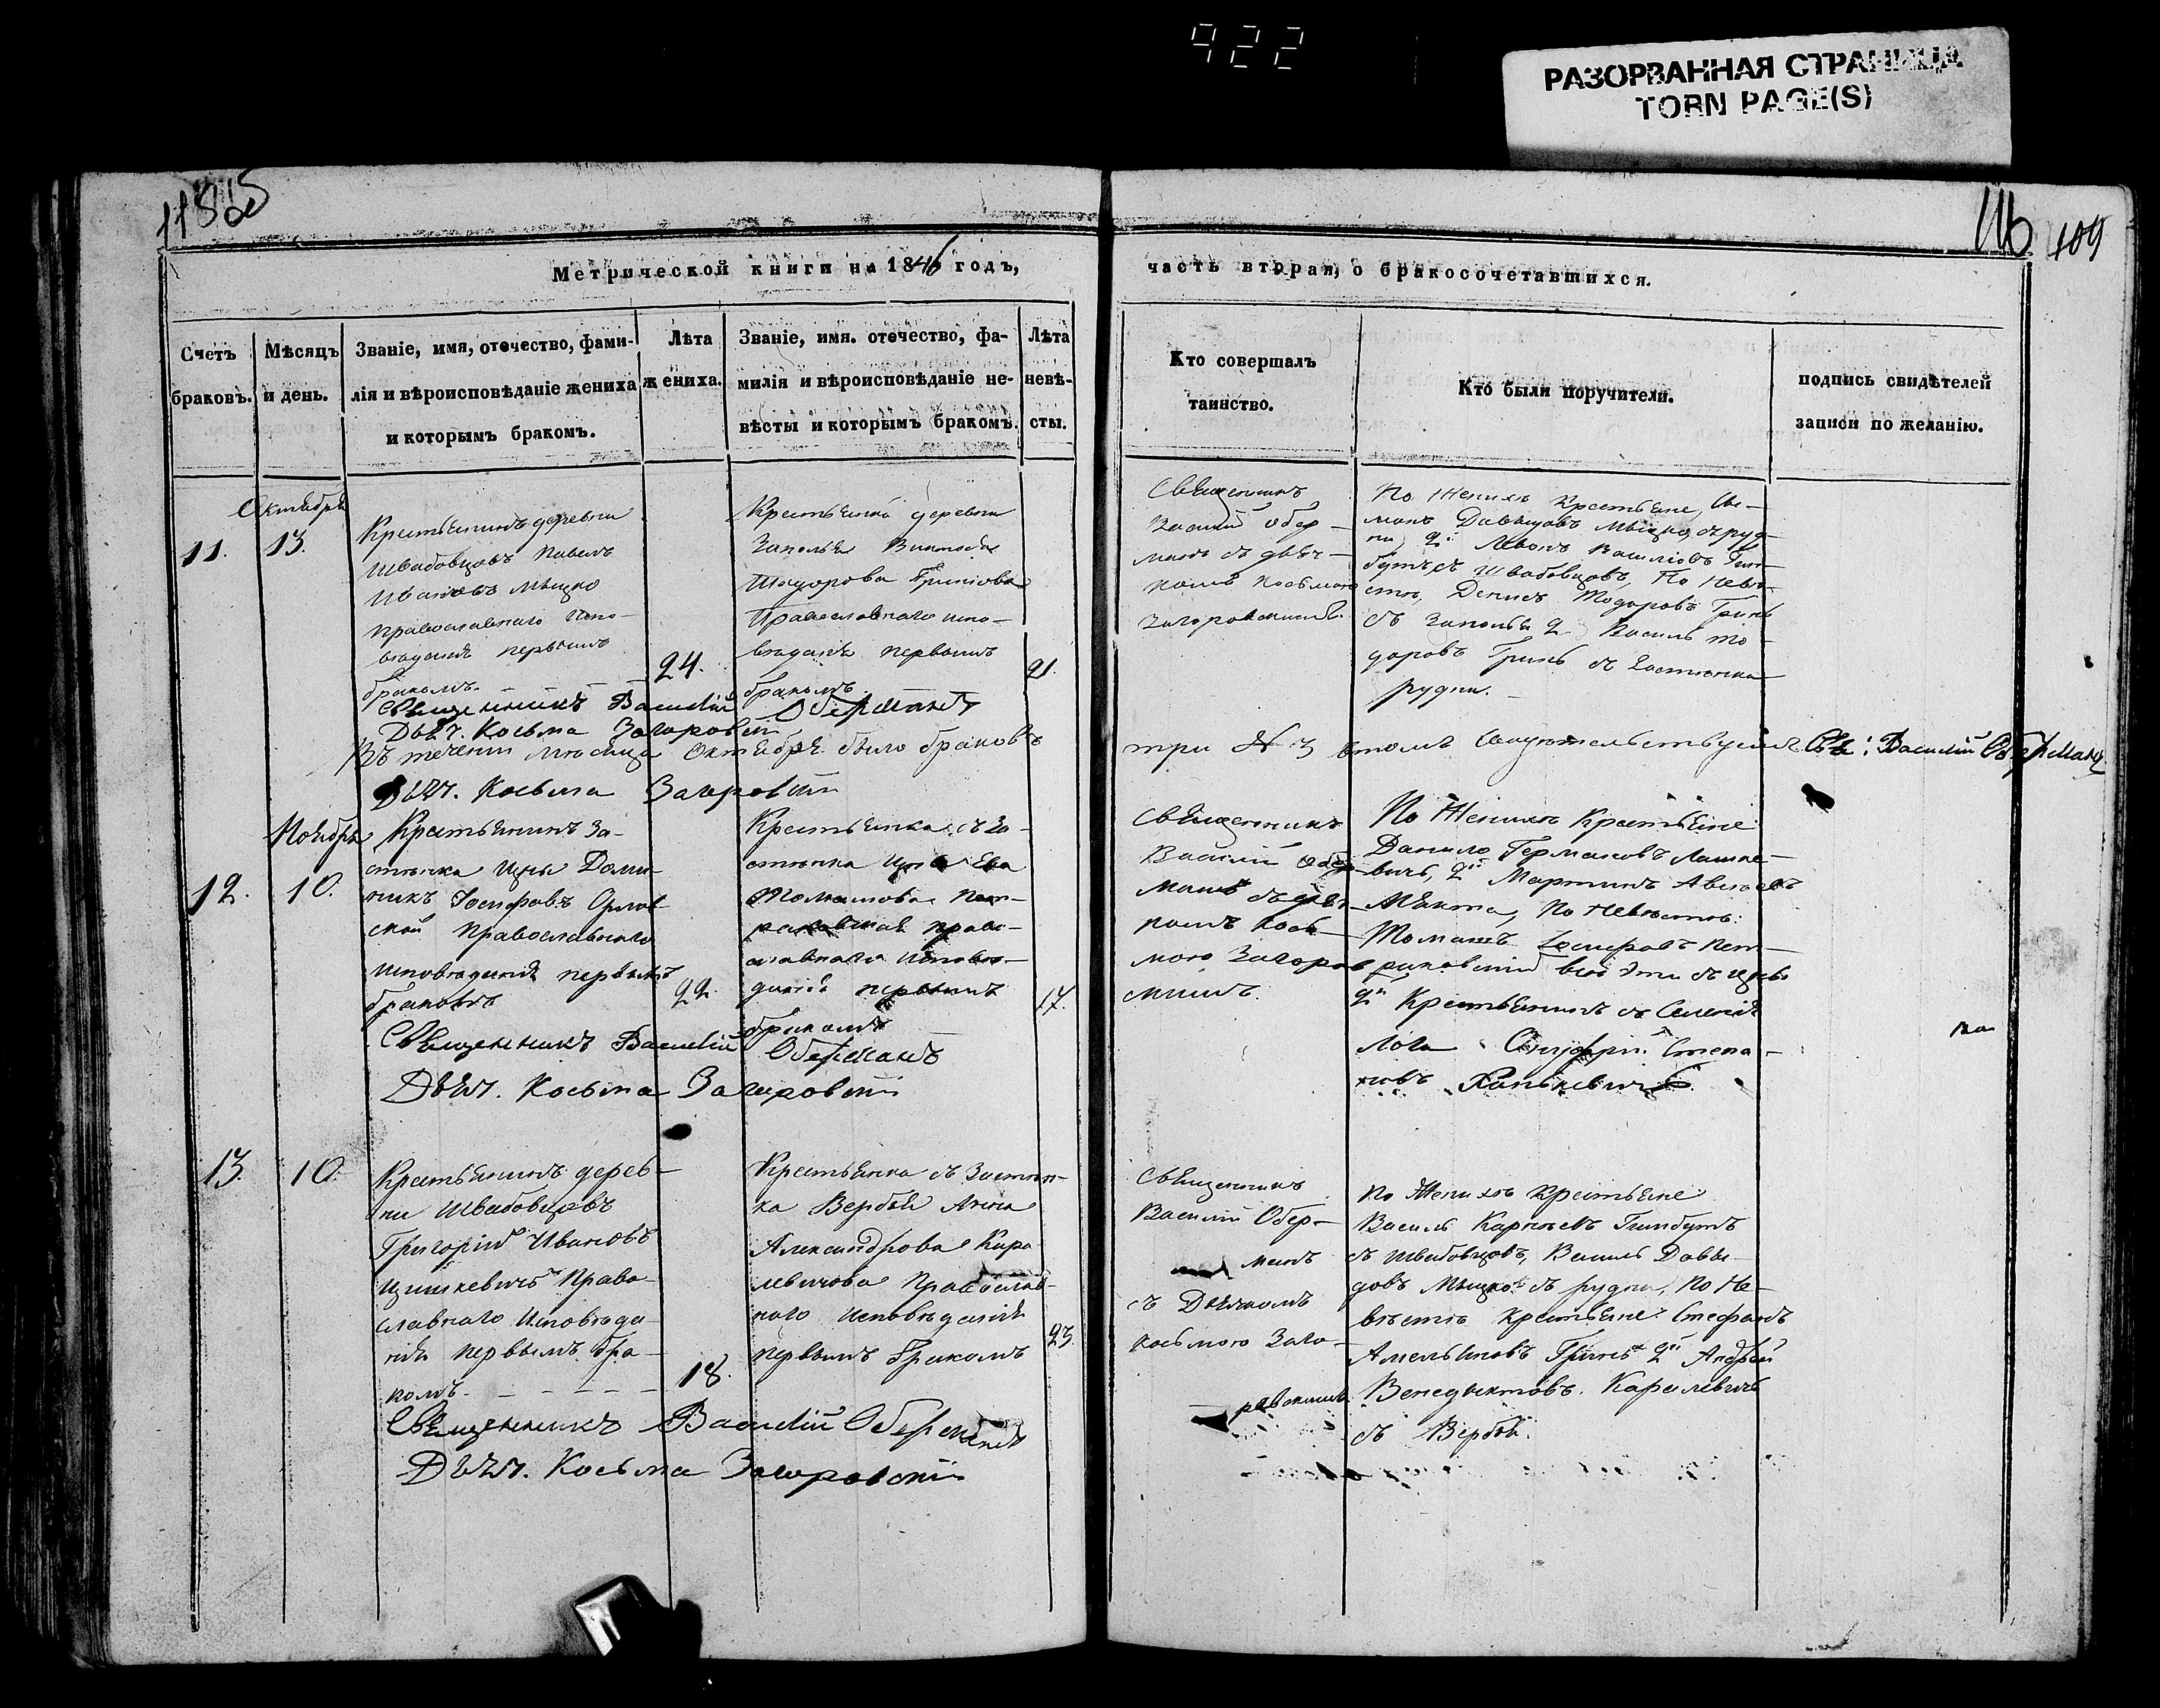 922
РАЗОРВАННАЯ СТРАНИЦА
TORN PAGE(S)
109
Метрической книги на 1846 годъ,
часть вторая, о бракосочетавшихся.
Счетъ
браковъ.
Мѣсяцъ
и день.
Званіе, имя, отечество, фами-
лія и вѣроисповѣданіе жениха
и которымъ бракомъ.
Лѣта
жениха.
Званіе, имя. отечество, фа-
милія и вѣроисповѣданіе не-
вѣсты и которымъ бракомъ.
Лѣта
невѣ-
сты.
Кто совершалъ
таинство.
Кто были поручители.
подпись свидѣтелей
записи по желанію.
11.
Октября
13.
Крестьянинъ деревни
Швабовцовъ Павелъ
Ивановъ Мыцко
православнаго испо-
вѣданія первымъ
бракомъ.
24.
Крестьянка деревни
Заполья
Тодорова
Православнаго испо-
вѣданія первымъ
бракомъ
21.
Священникъ
Василій Обер-
манъ съ дьяч-
комъ Косьмою
Загоровскимъ.
По Женихѣ Крестьяне,
Давыдовъ Мыцко
2й Василіовъ
съ Швабовцовъ, По Невѣ-
стѣ, Денисъ Тодоровъ Гринь
съ Заполья 2 Василь То-
доровъ Гринь съ
рудни.
Священникъ Василій Оберманъ
Дьяч. Косьма Загоровскій
Въ теченіи мѣсяца Октября было браковъ
три № 3 въ томъ свидѣтельствуемъ Св: Василій Оберманъ
Дьяч. Косьма Загоровскій
12.
Ноября
10.
Крестьянинъ За-
стѣнка Цны Доми-
никъ Іосифовъ Орлов-
ской Православнаго
исповѣданія первымъ
бракомъ
22.
Крестьянка съ За-
стѣнка Цны Ева
Томашова Пет-
раковская право-
славнаго исповѣ-
данія первымъ
бракомъ
17.
Священникъ
Василій Обер-
манъ съ дьяч-
комъ Кось-
мою Загоров
скимъ.
По Женихѣ Крестьяне
Данило Германовъ
2й Мартинъ
По Невѣстѣ:
Томашъ Іосифовъ Пет-
раковскій
2й Крестьянинъ съ Селенія
Лоча Онуфрій Степа-
новъ Ханькевичъ.
Священникъ Василій Оберманъ
Дьяч. Косьма Загоровскій
13.
10.
Крестьянинъ дерев-
ни Швабовцовъ
Григорій Ивановъ
Цишкевичъ Право-
славнаго Исповѣда-
нія первымъ бра-
комъ.
18.
Крестьянка съ Застѣн-
ка Вербы Анна
Александрова Каро-
левичова Православ-
наго исповѣданія
первымъ бракомъ
23.
Священникъ
Василій Обер-
манъ
съ Дьячкомъ
Косьмою Заго-
ровскимъ
По Женихѣ Крестьяне
Василь Карнѣевъ Гинбутъ
съ Швабовцовъ, Василь Давы-
довъ Мыцко съ рудни, По Не-
вѣстѣ Крестьяне: Стефанъ
Амельяновъ Гринь 2й Андрей
Венедыктовъ Каролевичъ
съ Вербы.
Священникъ Василій Оберманъ
Дьяч. Косьма Загоровскій